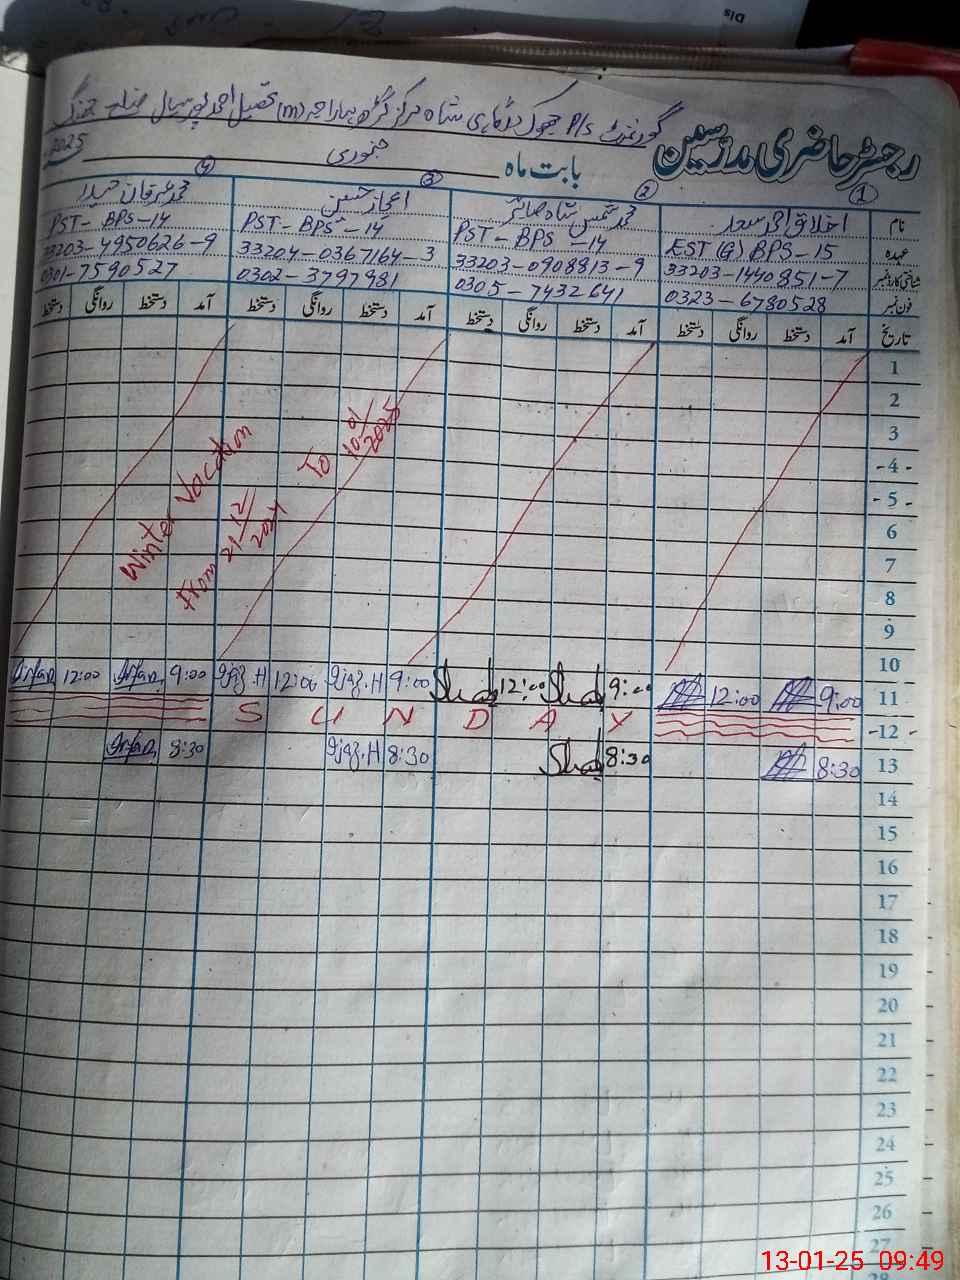 Dis
گورنمنٹ P/s جھوک شاہ مرکز گڑھ مہاراجہ (m) تحصیل احمد پور سیال ضلع جھنگ
رجسٹر حاضری مدرسین
بابت ماہ جنوری 2025
① ② ③ ④
نام اخلاق احمد محمد شمس شاہ اعجاز حسین محمد عرفان حیدر
عہدہ EST (G) BPS-15 PST-BPS-14 PST-BPS-14 PST-BPS-14
شناختی کارڈ نمبر 33203-1440851-7 33203-0908813-9 33204-0367164-3 33203-4950626-9
فون نمبر 0323-6780528 0305-7432641 0302-3797981 0301-7590527
تاریخ آمد دستخط روانگی دستخط آمد دستخط روانگی دستخط آمد دستخط روانگی دستخط آمد دستخط روانگی دستخط
1
2
3
-4-
-5-
6
7
8
9
10
Winter Vacation
From 21/12/2024 To 10/01/2025
11 9:00 12:00 9:00 Shah 12:00 Shah 9:00 Ijaz.H 12:00 Ijaz.H 9:00 Irfan 12:00 Irfan
-12- S U N D A Y
13 8:30 8:30 Shah 8:30 Ijaz.H 8:30 Irfan
14
15
16
17
18
19
20
21
22
23
24
25
26
27
28
13-01-25 09:49